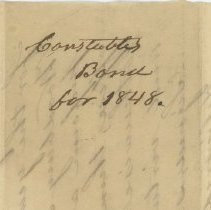 Constables
Bond
for 1848.